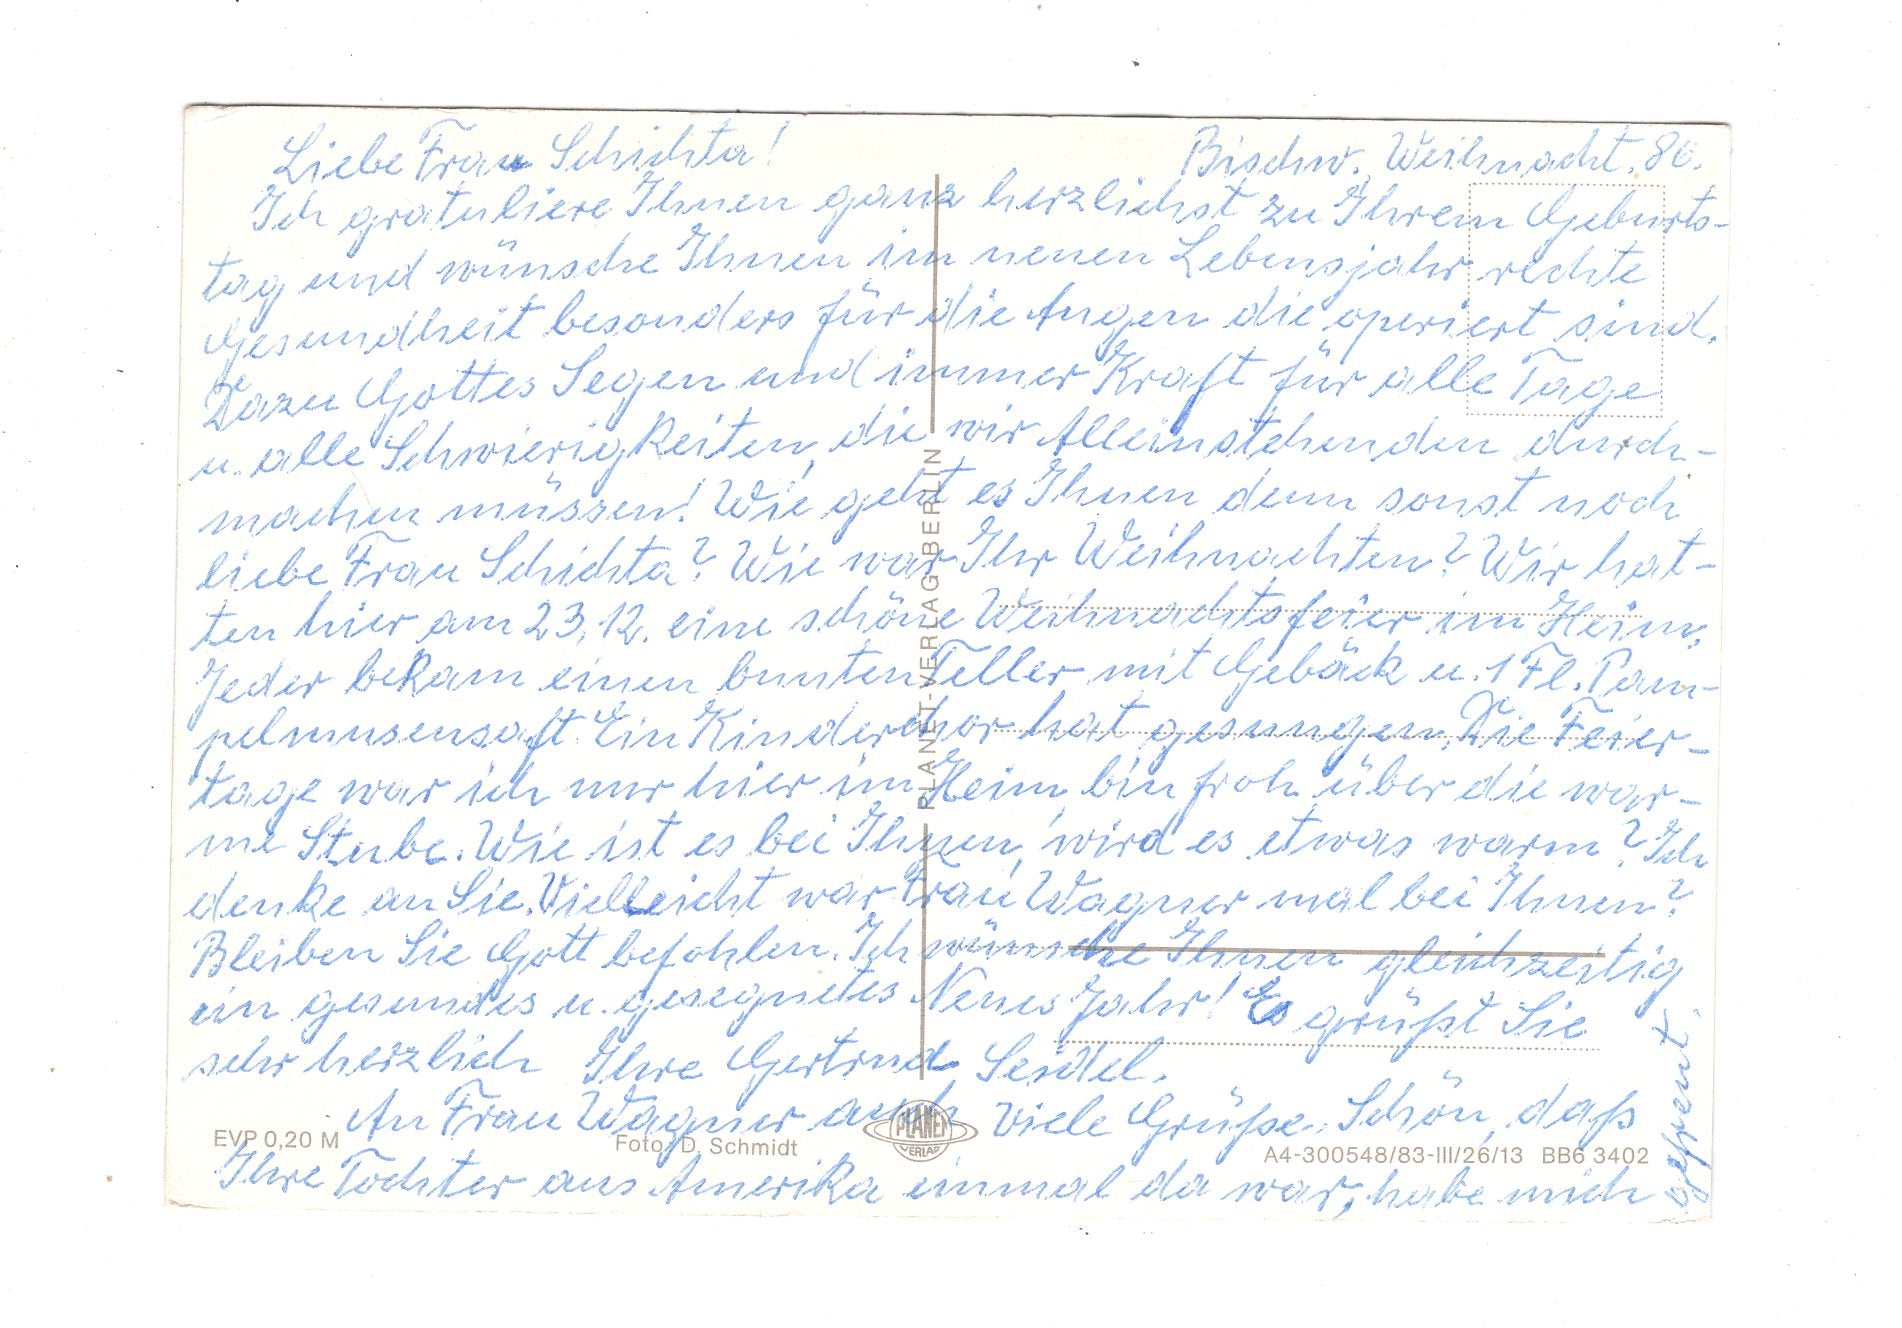 Liebe Frau Schichta! Bischw. Weihnacht. 86.
Ich gratuliere Ihnen ganz herzlichst zu Ihrem Geburts-
tag und wünsche Ihnen im neuen Lebensjahr rechte
Gesundheit besonders für die Augen die operiert sind.
Dazu Gottes Segen und immer Kraft für alle Tage
u. alle Schwierigkeiten, die wir Alleinstehenden durch-
machen müssen! Wie geht es Ihnen denn sonst noch
liebe Frau Schichta? Wie war Ihr Weihnachten? Wir hat-
ten hier am 23.12. eine schöne Weihnachtsfeier im Heim.
Jeder bekam einen bunten Teller mit Gebäck u. 1 Fl. Pam-
pelmusensaft. Ein Kinderchor hat gesungen. Die Feier-
tage war ich nur hier im Heim, bin froh über die war-
me Stube. Wie ist es bei Ihnen, wird es etwas warm? Ich
denke an Sie. Vielleicht war Frau Wagner mal bei Ihnen?
Bleiben Sie Gott befohlen. Ich wünsche Ihnen gleichzeitig
ein gesundes u. gesegnetes Neues Jahr! Es grüßt Sie
sehr herzlich Ihre Gertrud Seidel.
An Frau Wagner auch viele Grüße. Schön, daß
Ihre Tochter aus Amerika einmal da war, habe mich
gefreut.
PLANET-VERLAG BERLIN
EVP 0,20 M
Foto: D. Schmidt
PLANET
VERLAG
A4-300548/83-III/26/13 BB6 3402